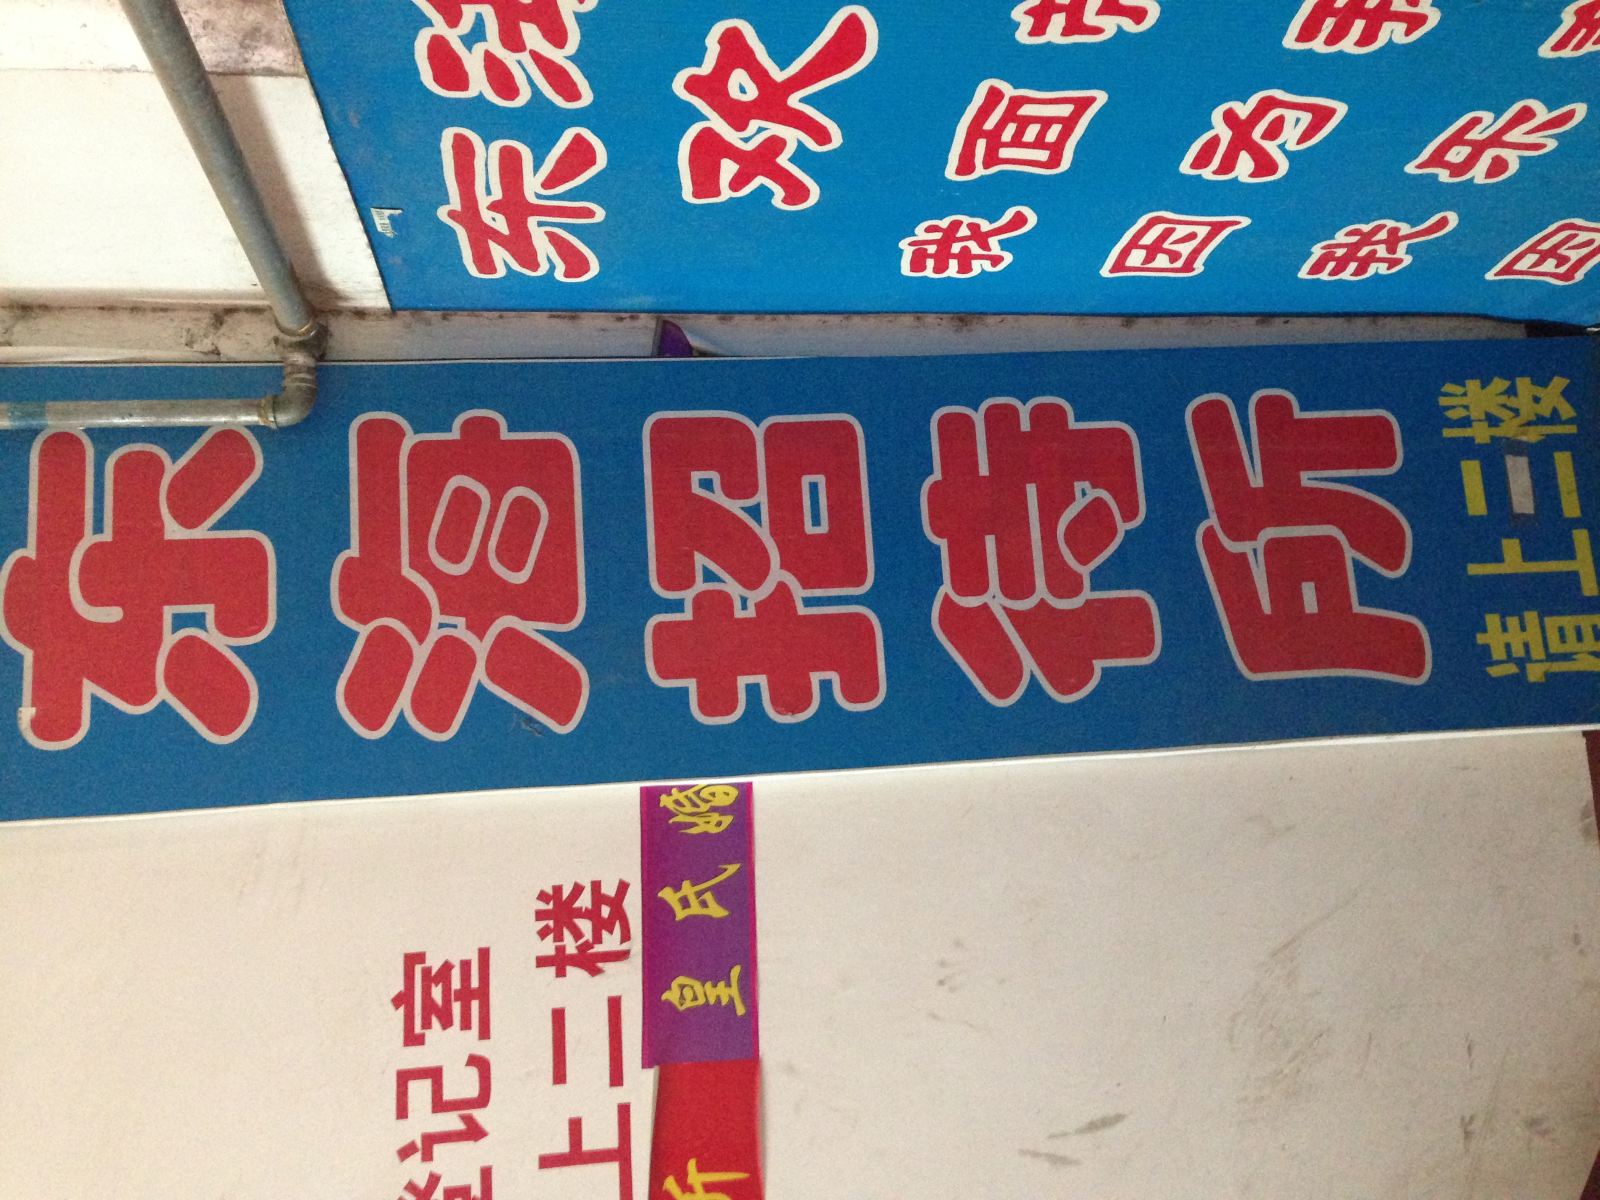 记室
上二楼
皇氏
东
海
招
待
所
请上二楼
东海
欢
我面
因为我
我乐
因